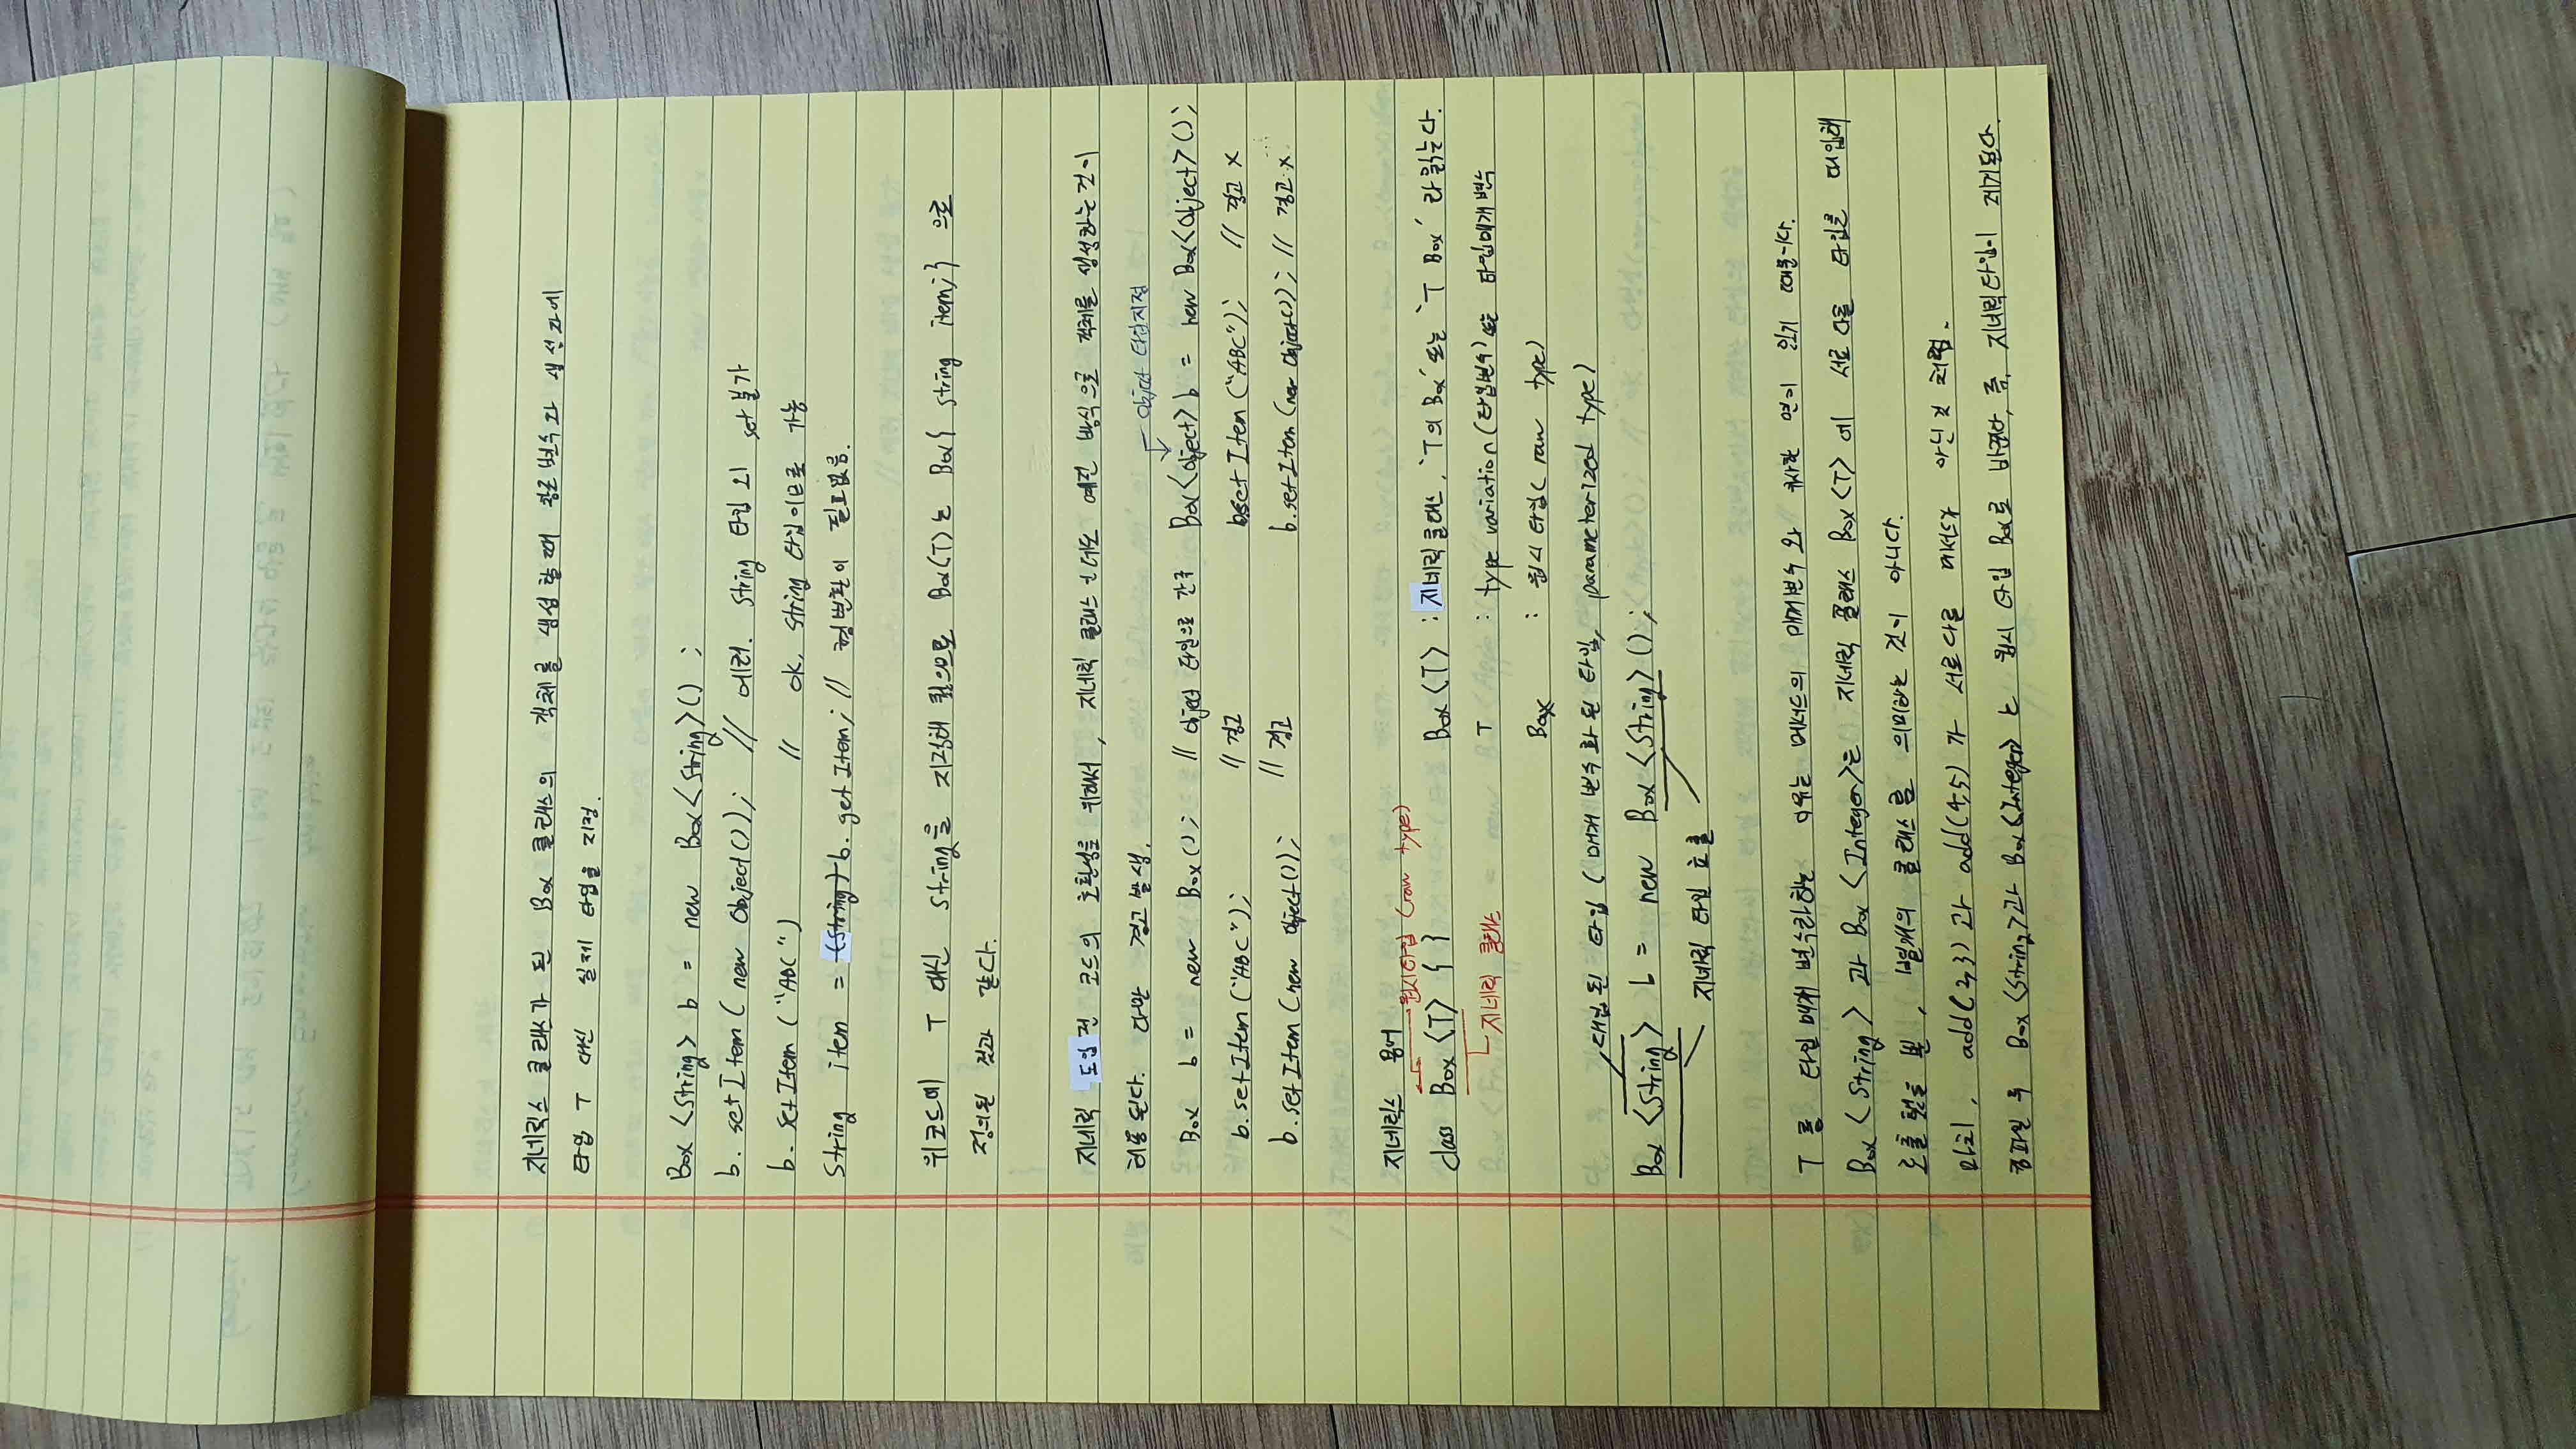 지네릭스 클래스가 된 Box 클래스의 객체를 생성할 때 참조변수와 생성자에
타입 T 대신 실제 타입을 지정.
Box <String> b = new Box<String>() ;
b. setItem ( new Object()); // 에러. String 타입 외 set 불가
b. setItem ("ABC") // ok, String 타입이므로 가능
String item = (String) b. getItem; // 형변환이 필요없음.
위코드에 T 대신 String을 지정해 줬으므로 Box(T)는 Box{ String item;} 으로
정의된 것과 같다.
지네릭 도입전 코드의 호환성을 위해서, 지네릭 클래스인데도 예전 방식으로 객체를 생성하는 것이
허용된다. 다만 경고 발생.
Object 타입지정
Box b = new Box(); // Object 타입으로 간주 Box<Object> b = new Box<Object>();
b.setItem ("ABC"); // 경고 b.setItem ("ABC"); // 경고 x
b.setItem (new Object()); // 경고 b.setItem (new Object()); // 경고 x
지네릭스 용어
원시타입 (raw type)
class Box <T> { } Box <T> : 지네릭 클래스, 'T의 Box' 또는 'T Box' 라 읽는다.
지네릭 클래스
T : type variation (타입변수) 또는 타입매개변수
Box : 원시 타입( raw type)
대입된 타입 ( 매개 변수화 된 타입, parameterized type)
Box <String> b = new Box <String> ();
지네릭 타입 호출
T 를 타입 매개 변수라하는 이유는 메서드의 매개변수 와 유사한 면이 있기 때문이다.
Box <String> 과 Box <Integer>는 지네릭 클래스 Box <T> 에 서로 다른 타입을 대입해
호출했을 뿐, 별개의 클래스를 의미하는 것이 아니다.
마치, add(2,3) 과 add(4,5) 가 서로다른 메서드가 아닌것 처럼.
컴파일 후 Box <String>과 Box <Integer> 는 원시 타입 Box로 바뀐다, 즉, 지네릭타입이 제거된다.